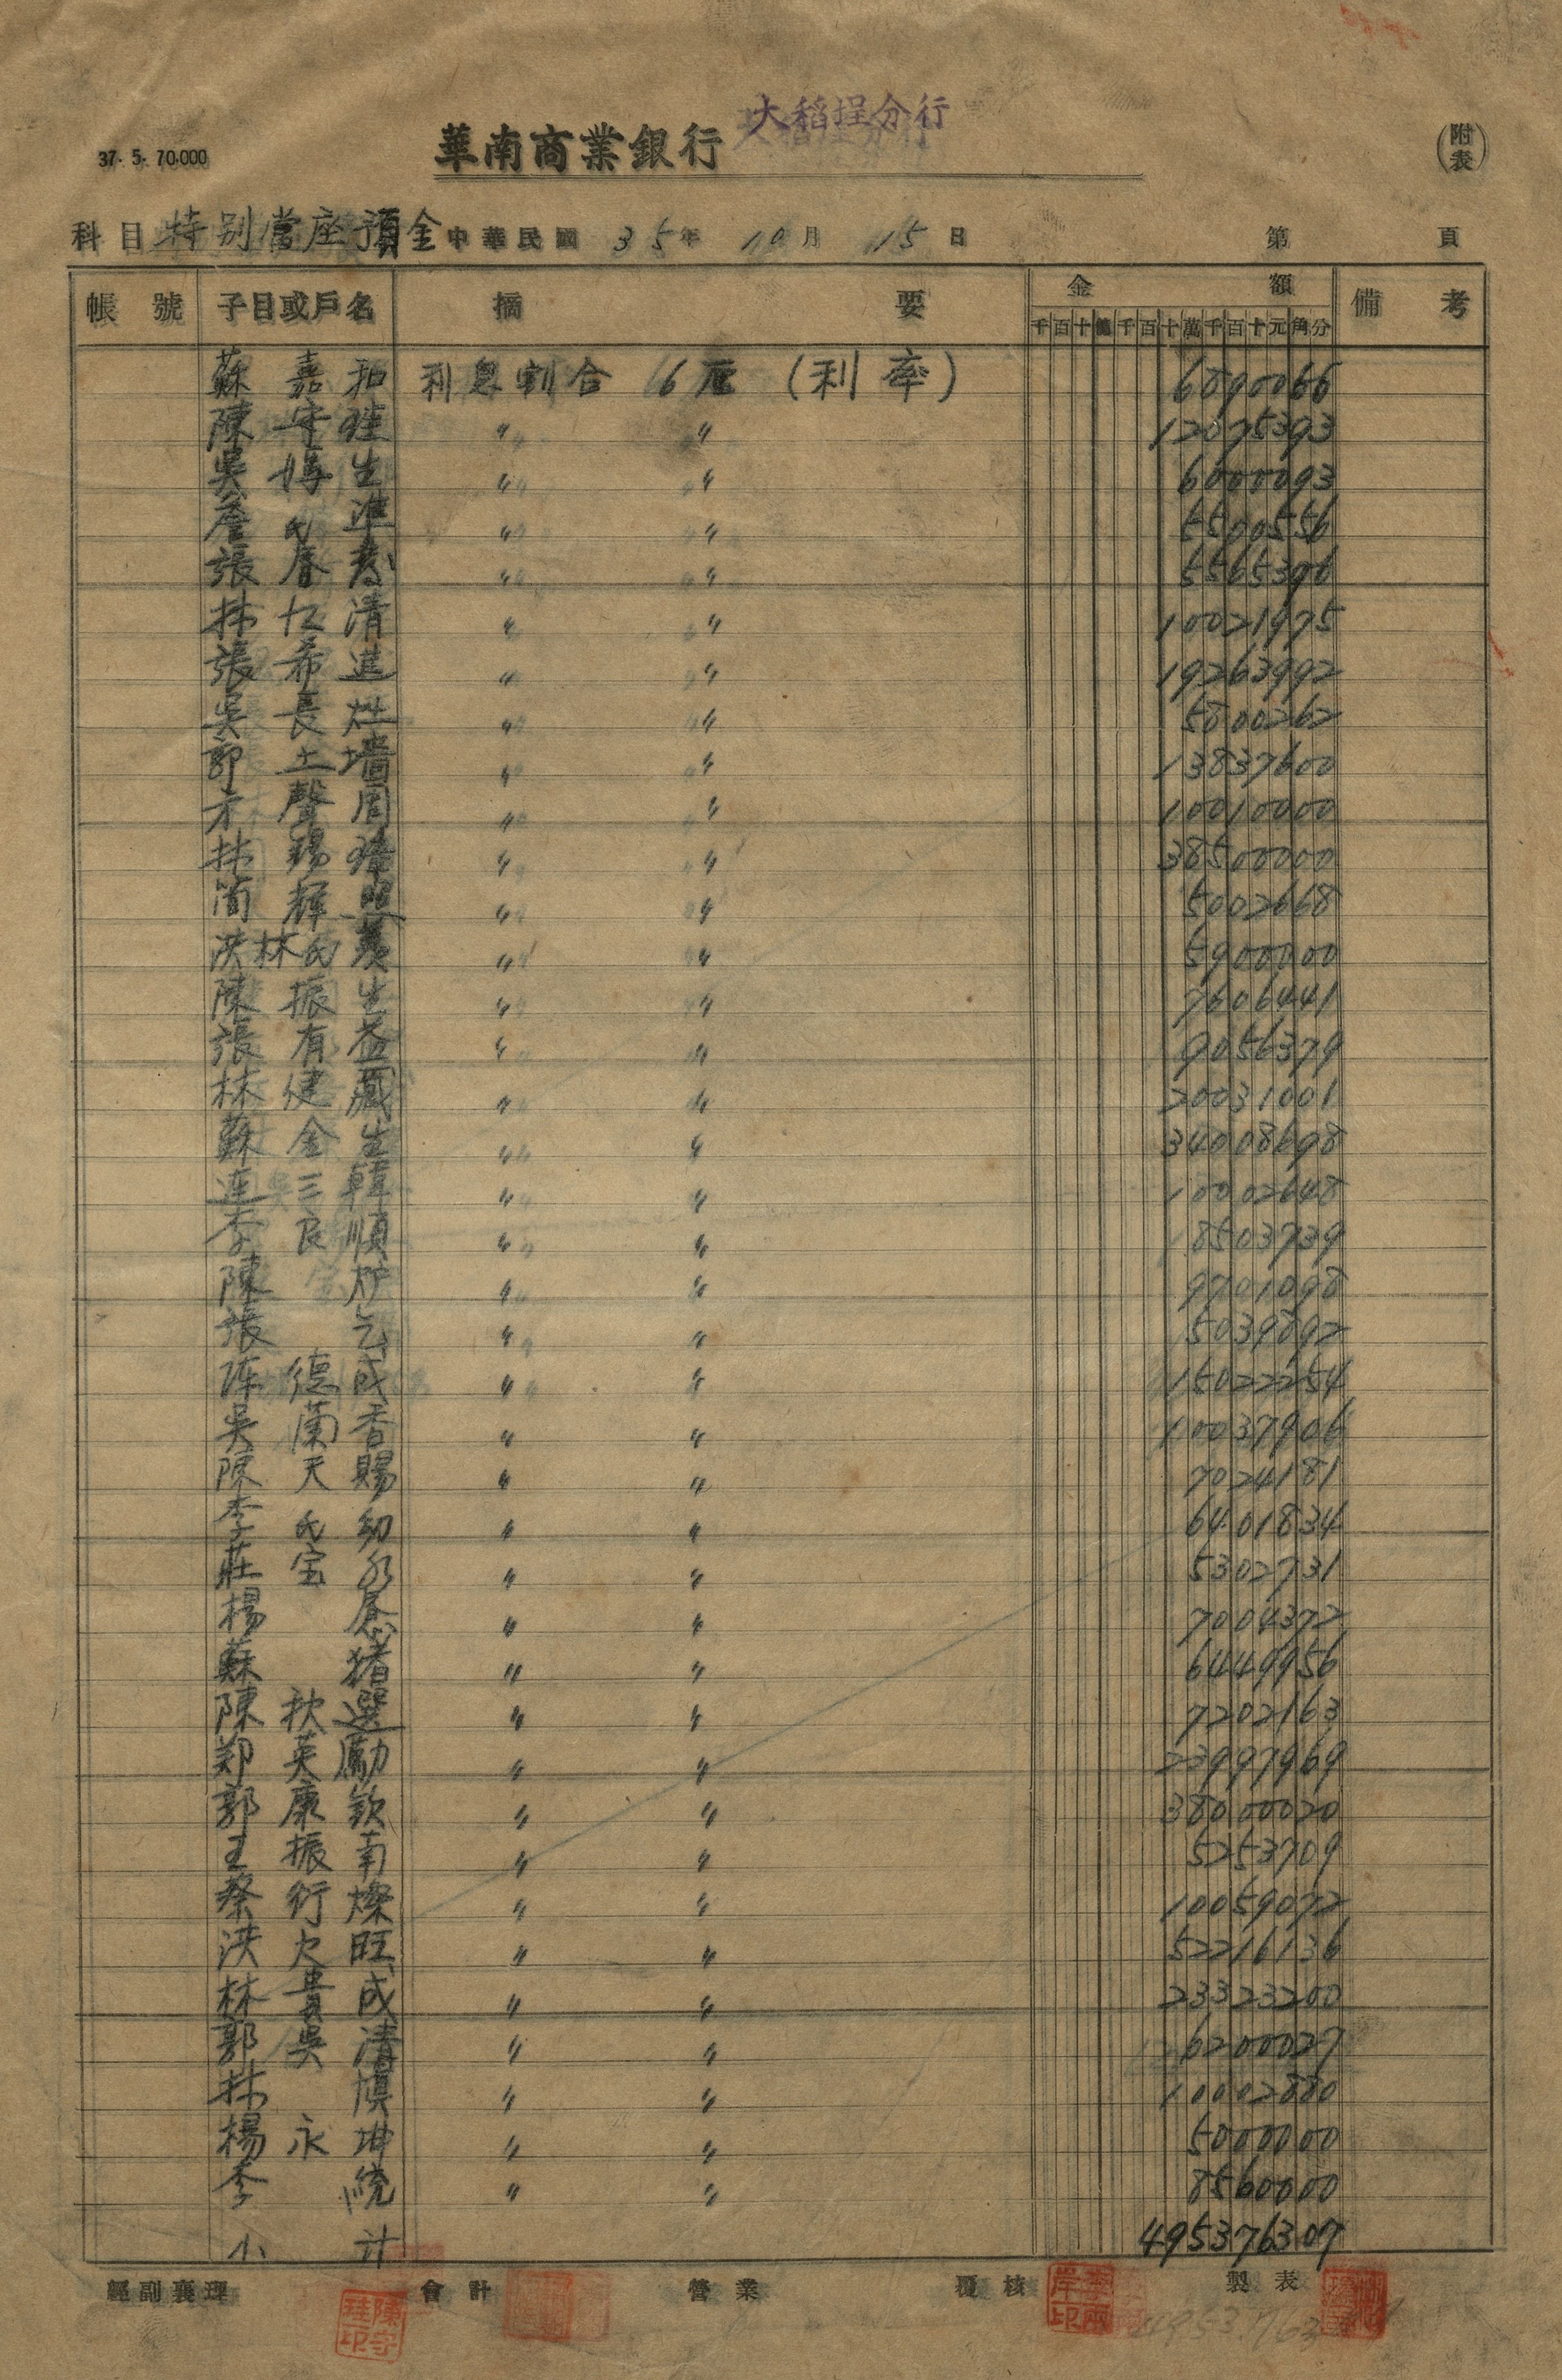 大稻埕分行
37. 5. 70.000 華南商業銀行 (附表)
科目 特別當座預金 中華民國 35年 10月 15日 第 頁
帳號 子目或戶名 摘要 金額 備考
千百十億千百十萬千百十元角分
蘇嘉和 利息割合 16厘 (利率) 6890066
陳守珪 〃 〃 12075393
吳媽生 〃 〃 6000093
詹氏準 〃 〃 5500556
張春 〃 〃 5565396
林仁清 〃 〃 10021975
張希進 〃 〃 19263992
吳長灶 〃 〃 5800262
郭土墻 〃 〃 13837600
方聲周 〃 〃 10010000
林錫 〃 〃 38500000
簡輝 〃 〃 5002668
洪林氏 〃 〃 5900000
陳振生 〃 〃 7606441
張有益 〃 〃 9056379
林健藏 〃 〃 20031001
蘇金生 〃 〃 34008698
連三韓 〃 〃 10002648
李良順 〃 〃 18503739
陳 〃 〃 9701098
張乞 〃 〃 5039892
陈德成 〃 〃 15022254
吳蘭香 〃 〃 10037906
陳天賜 〃 〃 7024181
李氏幼 〃 〃 6401834
莊宝 〃 〃 5302731
楊 〃 〃 7004372
蘇猪 〃 〃 6449956
陳秋選 〃 〃 7202163
郑英勵 〃 〃 23997969
郭廉欽 〃 〃 38000020
王振南 〃 〃 5253709
蔡衍燦 〃 〃 10059072
洪欠旺 〃 〃 52216136
林貴成 〃 〃 23323200
郭吳清 〃 〃 6200027
林慎 〃 〃 10002880
楊永坤 〃 〃 5000000
李統 〃 〃 8560000
小計 495376307
經副襄理 會計 營業 覆核 製表
陳守珪印
李兩岸印